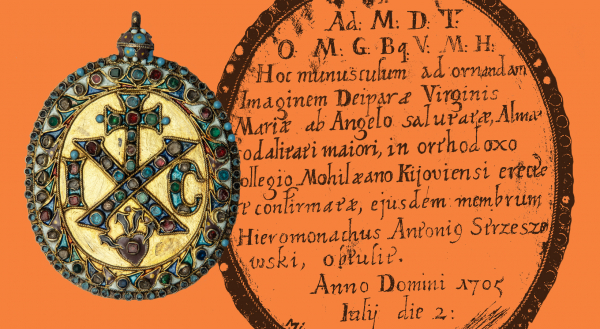 Ad: M: D: T:
O: M: G: Bq V: M: H:
Hoc munusculum ad ornandam
Imaginem Deiparæ Virginis
Mariæ ab Angelo salutatæ, Almæ
odalitati maiori, in orthodoxo
ollegio Mohilæano Kijoviensi erectæ
et confirmatæ, ejusdem membrum
Hieromonachus Antonig Strzeszo
wski, obtulit.
Anno Domini 1705
Iulij die 2:
IXC